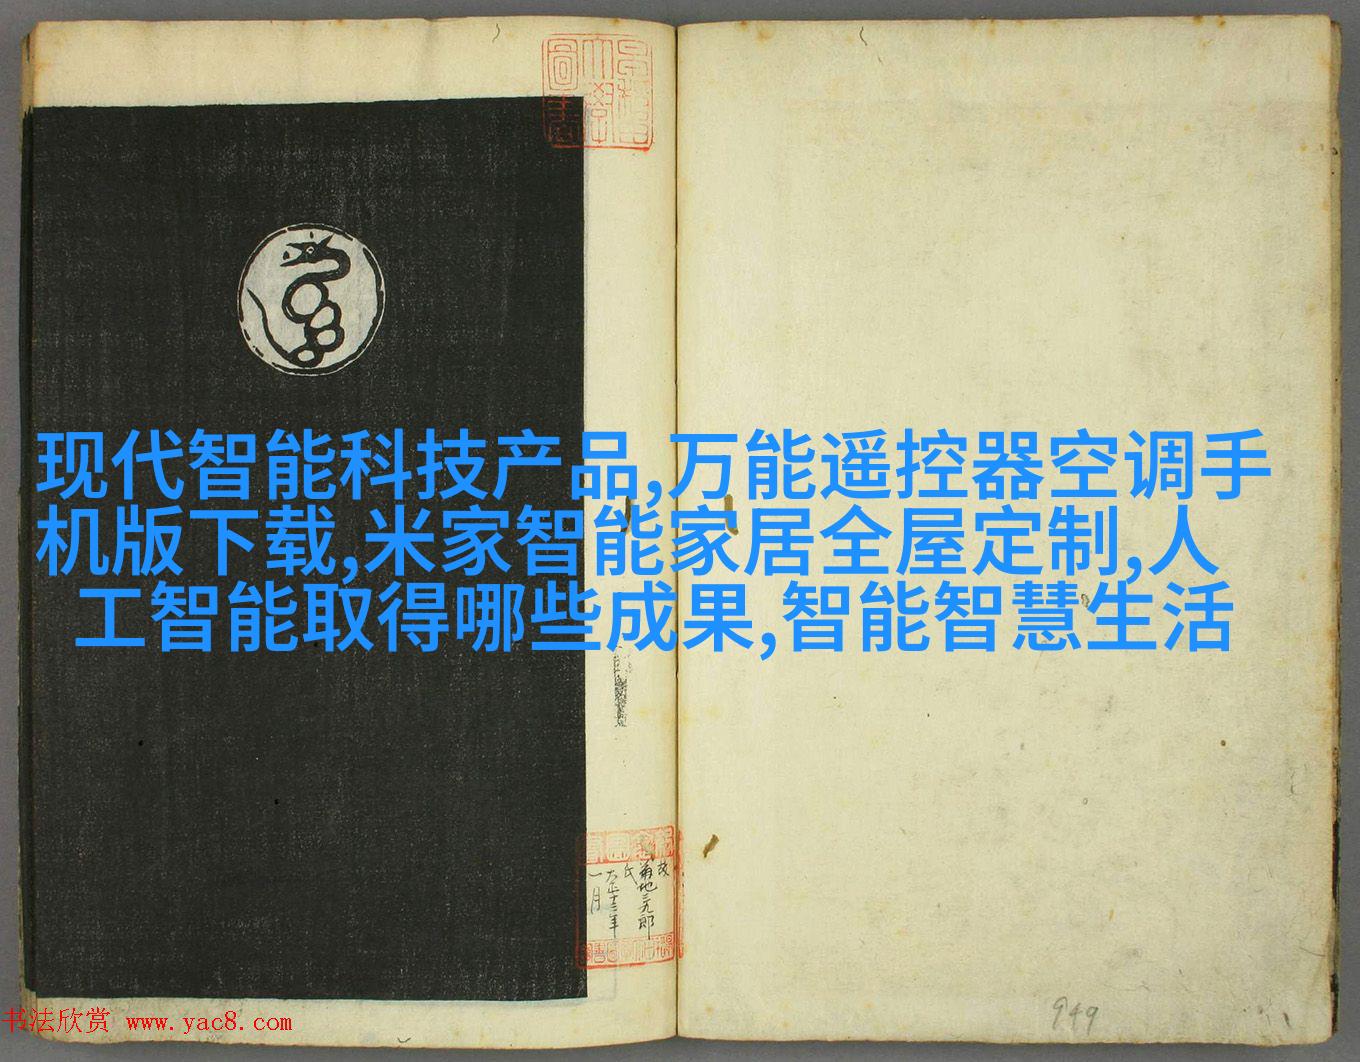 现代智能科技产品,万能遥控器空调手
机版下载,米家智能家居全屋定制,人
工智能取得哪些成果,智能智慧生活
故
菊地三九郎
氏
大正十三年
一月
949
书法欣赏 www.yac8.com